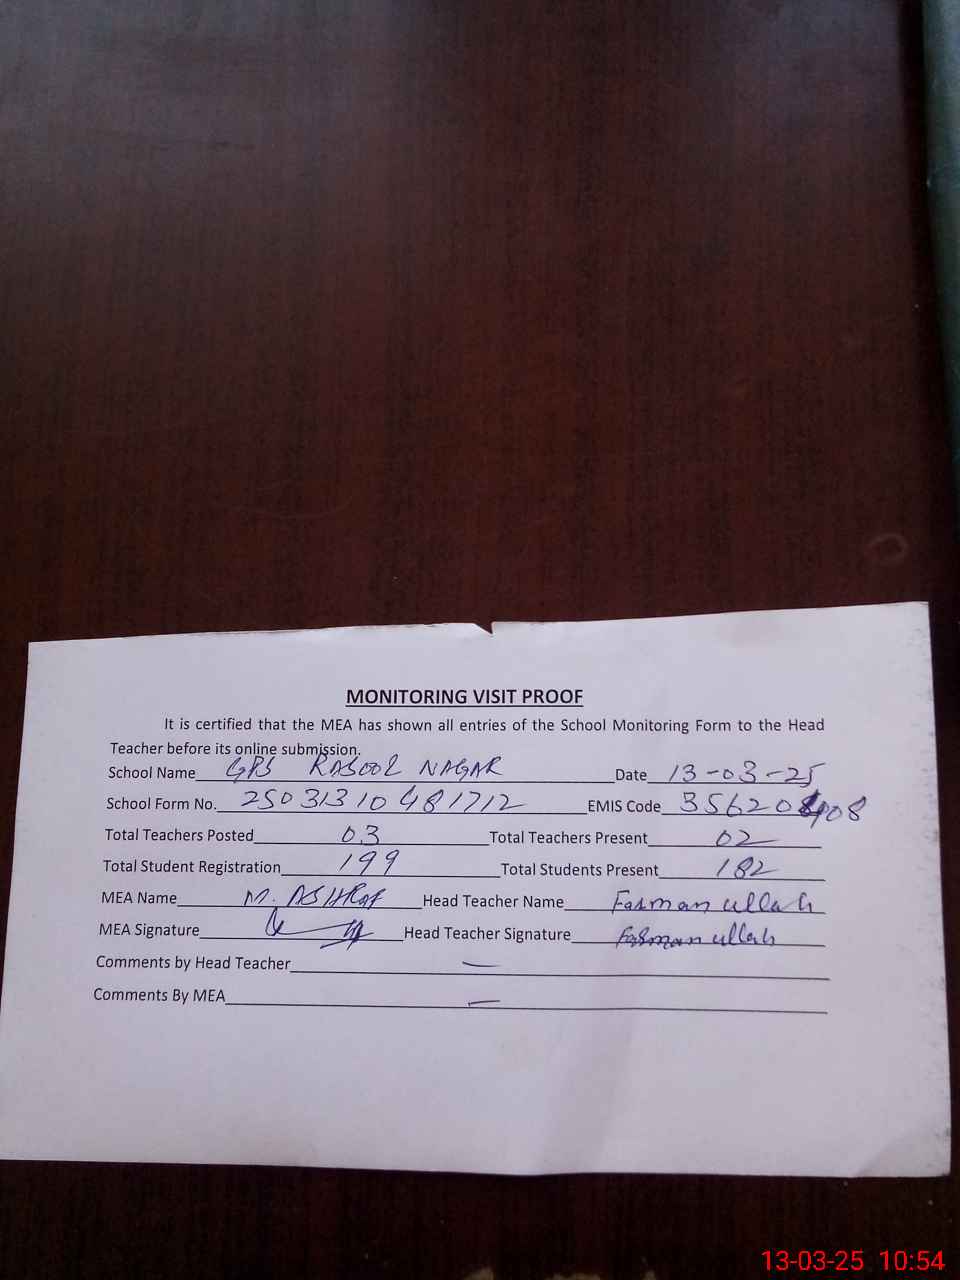 MONITORING VISIT PROOF
It is certified that the MEA has shown all entries of the School Monitoring Form to the Head
Teacher before its online submission.
School Name GPS RASOOL NAGAR Date 13-03-25
School Form No. 25031310481712 EMIS Code 35620
Total Teachers Posted 03 Total Teachers Present 02
Total Student Registration 199 Total Students Present 182
MEA Name M. ASHRAF Head Teacher Name Farman ullah
MEA Signature Head Teacher Signature Farman ullah
Comments by Head Teacher —
Comments By MEA —
13-03-25 10:54